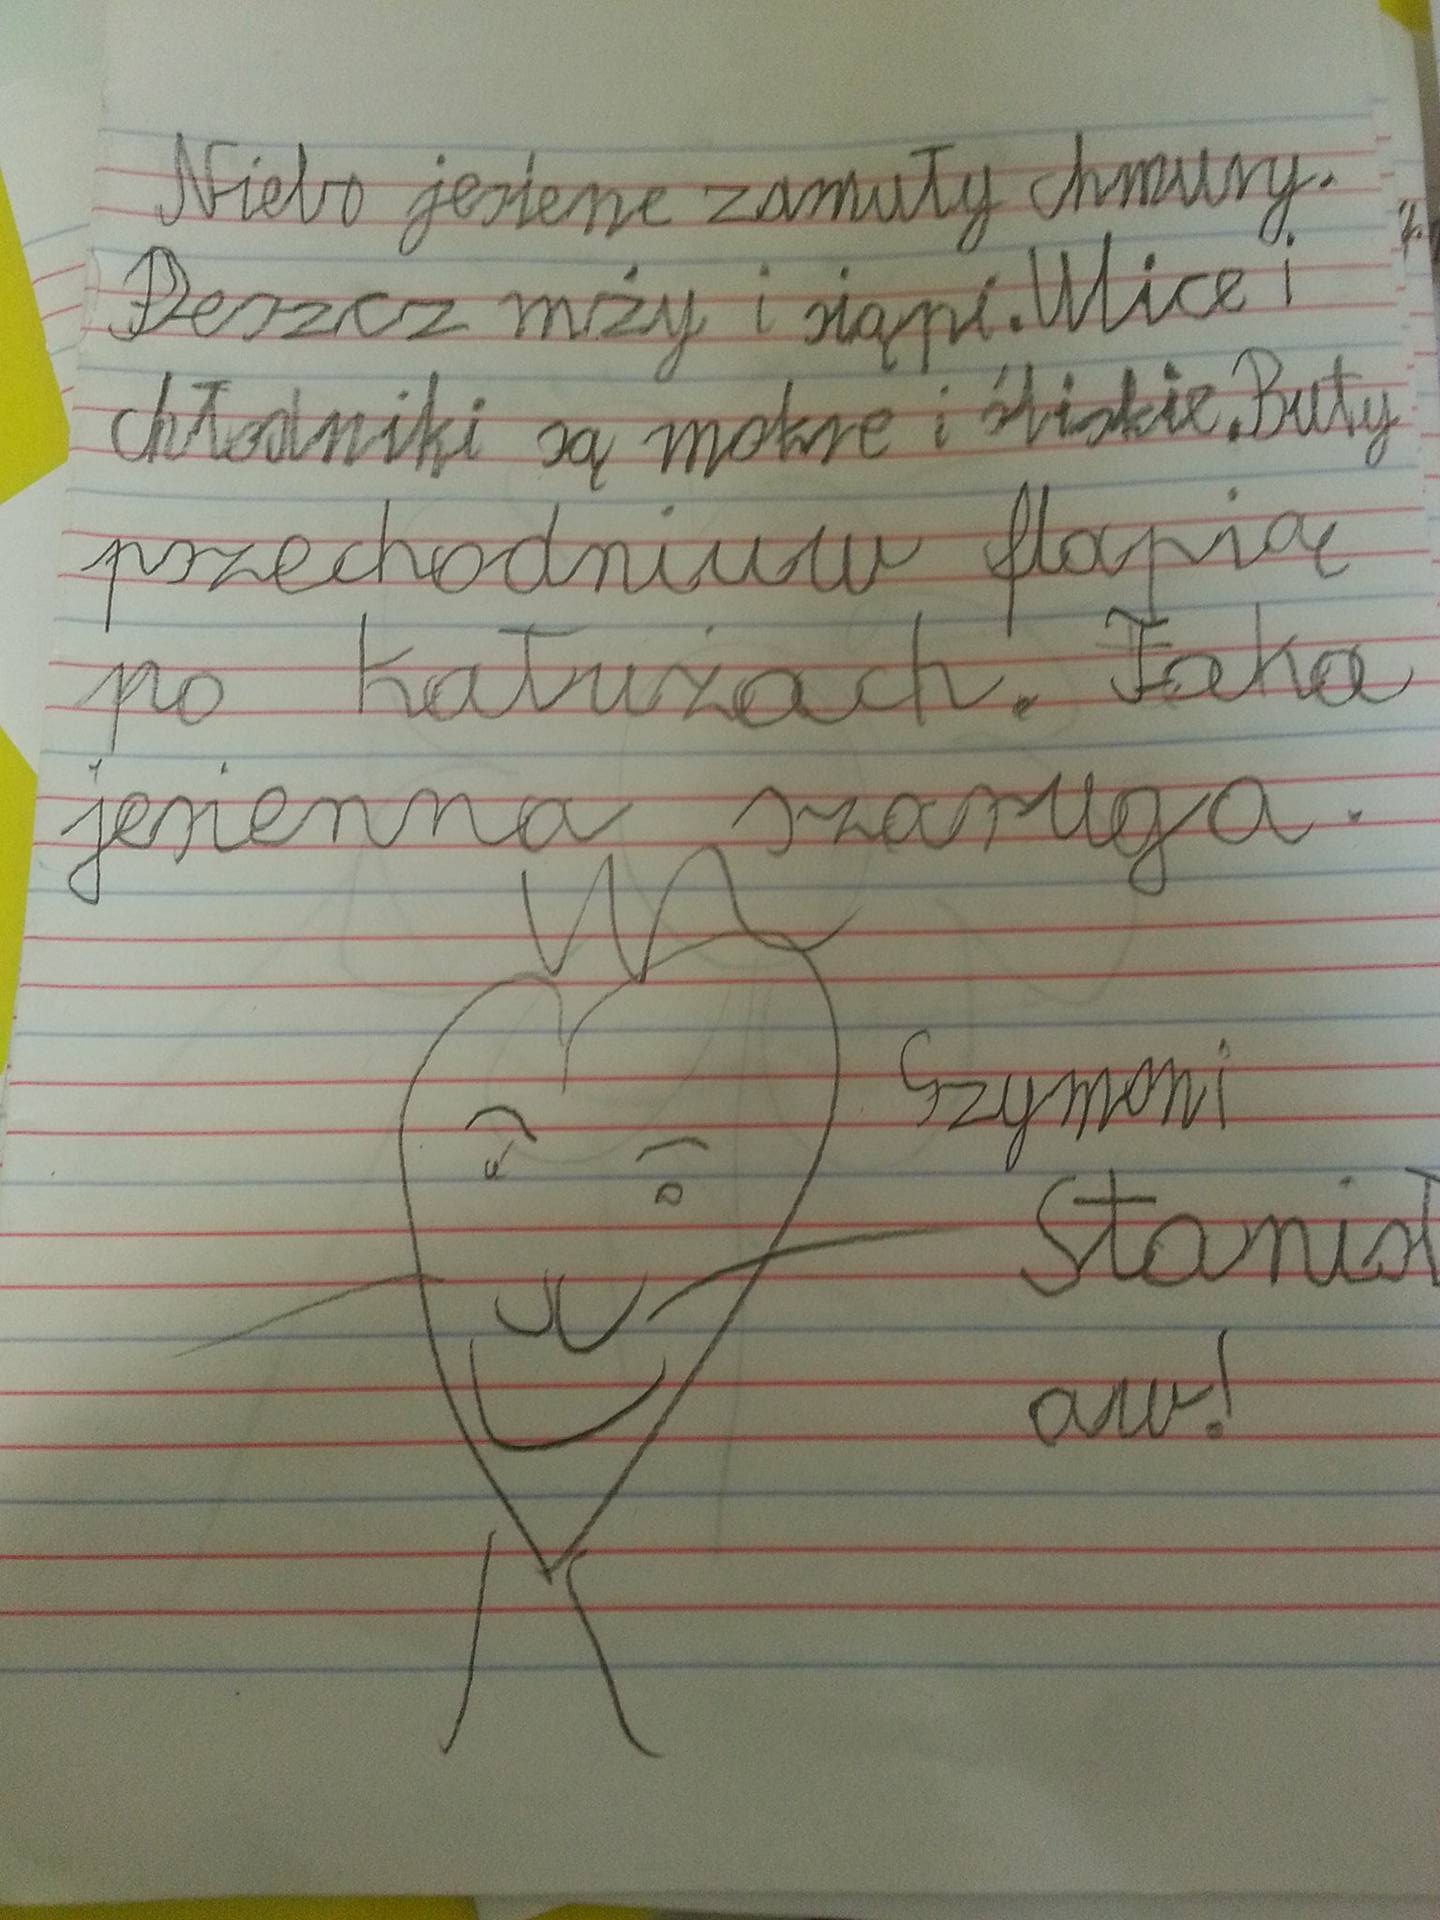 Niebo jesiene zamuły chmury.
Deszcz mży i siąpi. Ulice i
chłodniki są mokre i śliskie. Buty
przechodniuw flapią
po kałużach. Taka
jesienna szaruga.
Szymon i
Stanisł
aw!